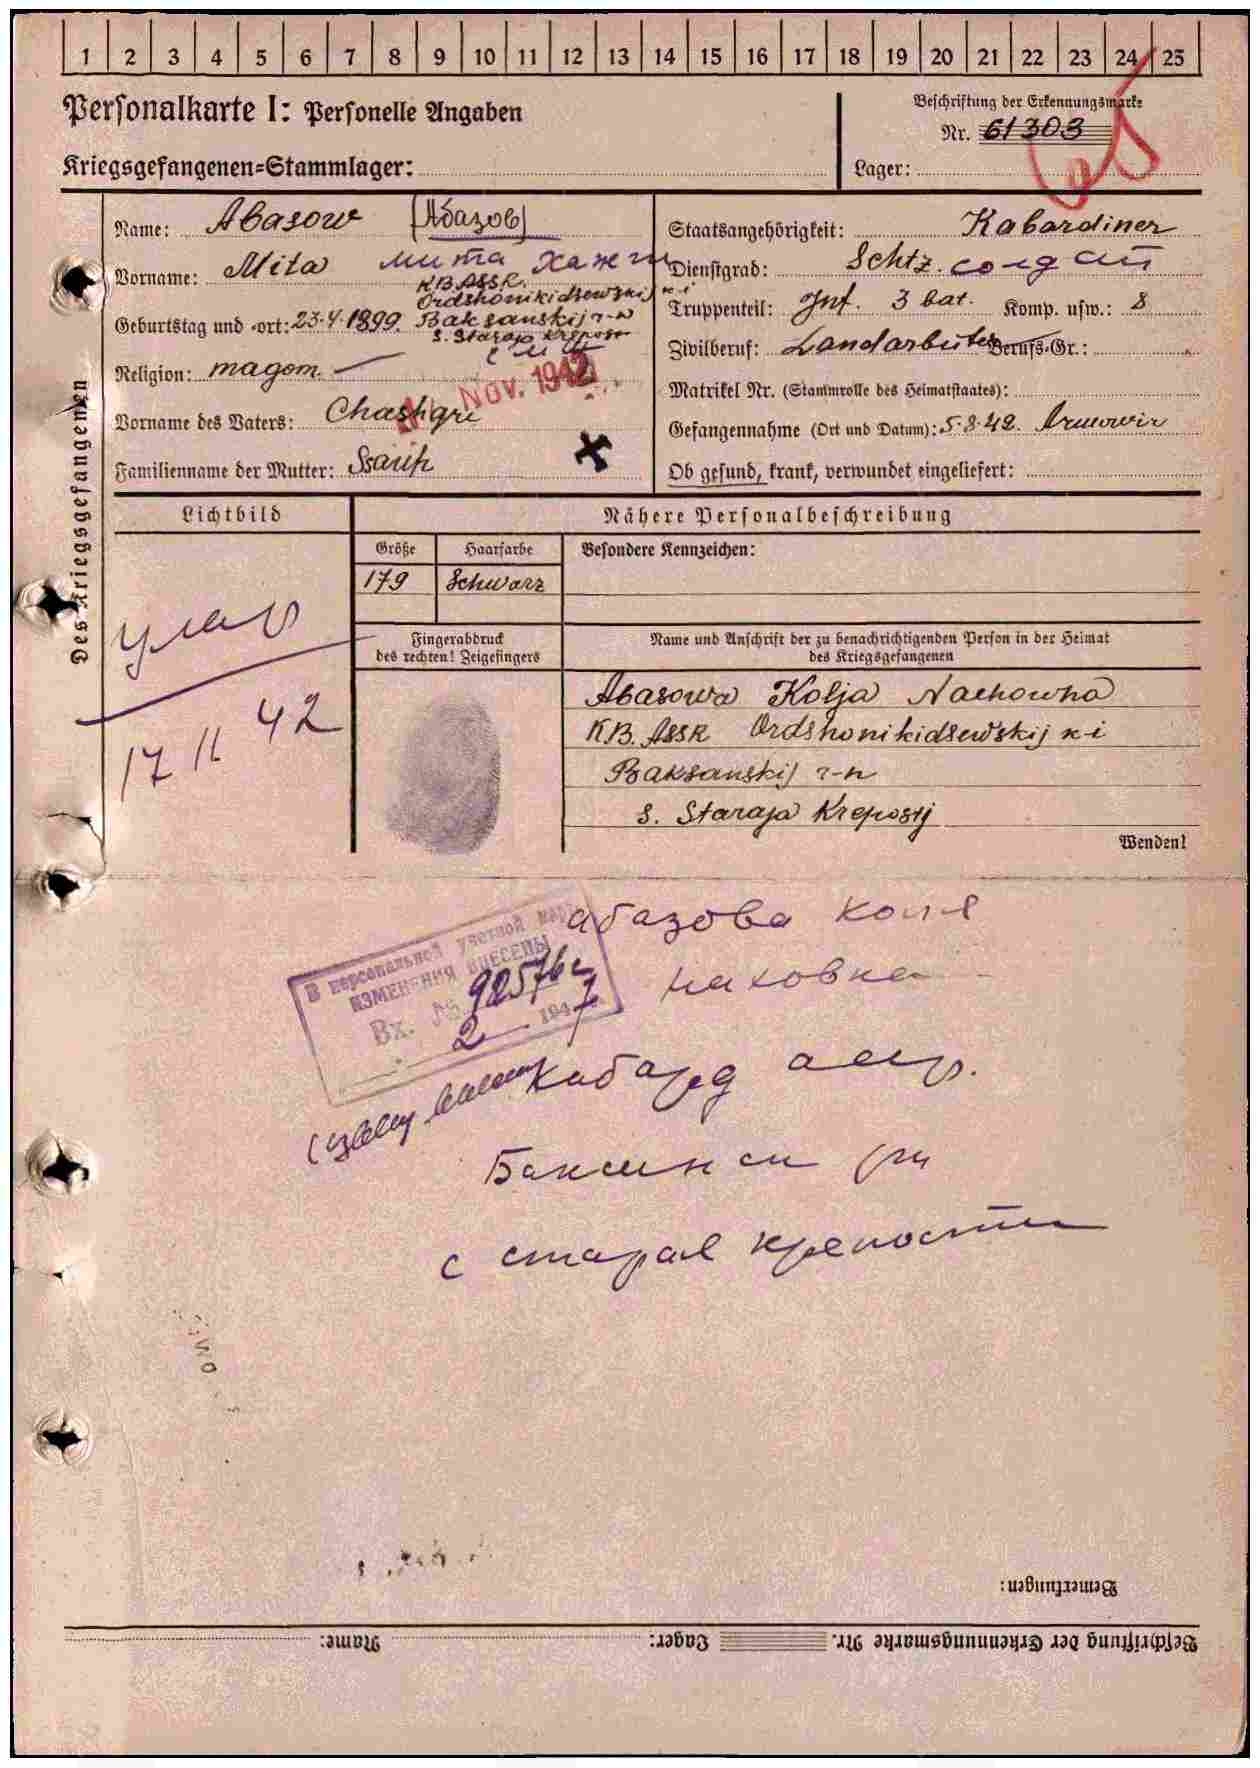 1 2 3 4 5 6 7 8 9 10 11 12 13 14 15 16 17 18 19 20 21 22 23 24 25
Personalkarte I: Personelle Angaben
Kriegsgefangenen=Stammlager:
Beschriftung der Erkennungsmarke
Nr. 61303
Lager:
Des Kriegsgefangenen
Name: Abasow [Абазов]
Vorname: Mita мита Хажги
KB. ASSR.
Ordshonikidsewskij k-i
Geburtstag und =ort: 23.4.1899. Baksanskij r-n
s. Staraja Krepost
Religion: magom. —
NOV. 1942
Vorname des Vaters: Chashgri
Familienname der Mutter:
Staatsangehörigkeit: Kabardiner
Dienstgrad: Schtz. солдат
Truppenteil: Inf. 3 bat. Komp. usw.: 8
Zivilberuf: Landarbeiter Berufs=Gr.:
Matrikel Nr. (Stammrolle des Heimatstaates):
Gefangennahme (Ort und Datum): 5.8.42. Armowir
Ob gesund, krank, verwundet eingeliefert:
Lichtbild
умер
17 11 42
Nähere Personalbeschreibung
Größe Haarfarbe Besondere Kennzeichen:
179 Schwarz
Fingerabdruck
des rechten! Zeigefingers
Name und Anschrift der zu benachrichtigenden Person in der Heimat
des Kriegsgefangenen
Abasowa Kolja Nachowna
KB. ASSR Ordshonikidsewskij k-i
Baksanskij r-n
s. Staraja Krepostj
Wenden!
Абазова Коля
Наховна
В персональной учетной карт.
ИЗМЕНЕНИЯ ВНЕСЕНЫ
Вх. № 92576с
2 1947
Кабард асср.
Баксанск рн
с старая крепость
Bemerkungen:
Beschriftung der Erkennungsmarke Nr. Lager: Name: